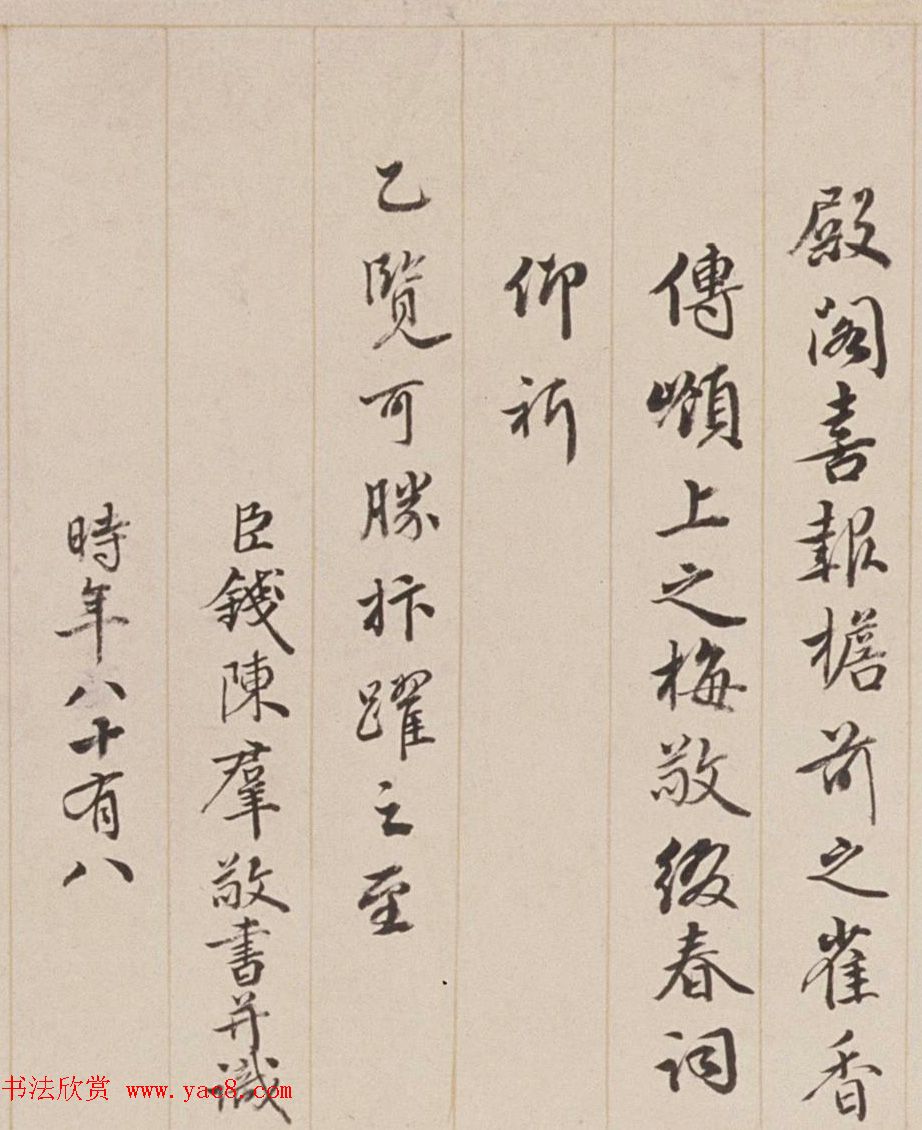 殿閣喜報檐前之雀香
傳嶺上之梅敬綴春詞
仰祈
乙覽可勝抃躍之至
臣錢陳羣敬書并識
時年八十有八
书法欣赏 www.yac8.com